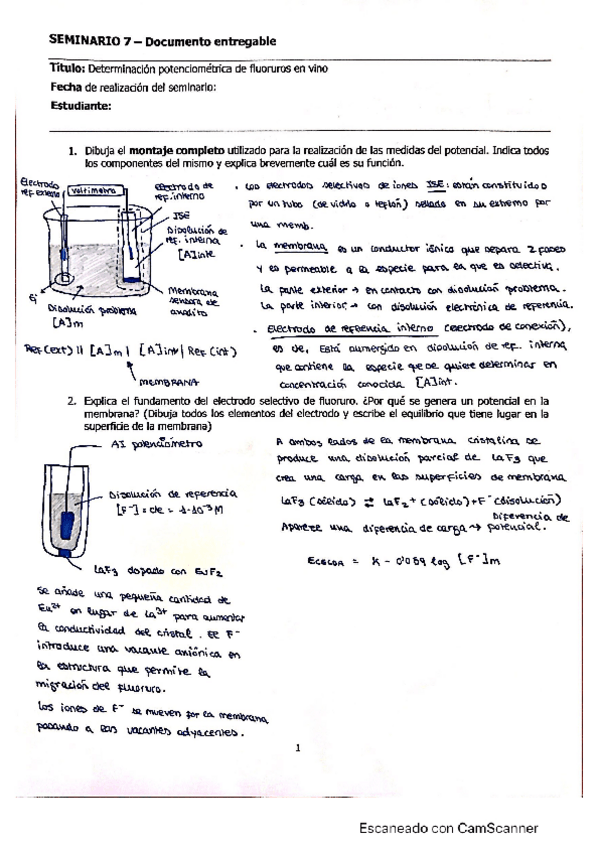 SEMINARIO 7 – Documento entregable
Título: Determinación potenciométrica de fluoruros en vino
Fecha de realización del seminario:
Estudiante:
1. Dibuja el montaje completo utilizado para la realización de las medidas del potencial. Indica todos
los componentes del mismo y explica brevemente cuál es su función.
Electrodo
ref. externo
voltímetro
Electrodo de
ref. interno
ISE
Disolución de
ref. interna
[A]int
Membrana
sensora de
analito
Ej
Disolución problema
[A]m
Ref(ext) || [A]m | [A]int | Ref(int)
MEMBRANA
· Los electrodos selectivos de iones ISE: están constituidos
por un tubo (de vidrio o teflón) sellado en su extremo por
una memb.
· La membrana es un conductor iónico que separa 2 fases
y es permeable a la especie para la que es selectiva.
La parte exterior → en contacto con disolución problema.
La parte interior → con disolución electrónica de referencia.
· Electrodo de referencia interno (electrodo de conexión),
es de, está sumergido en disolución de ref. interna
que contiene la especie que se quiere determinar en
concentración conocida [A]int.
2. Explica el fundamento del electrodo selectivo de fluoruro. ¿Por qué se genera un potencial en la
membrana? (Dibuja todos los elementos del electrodo y escribe el equilibrio que tiene lugar en la
superficie de la membrana)
Al potenciómetro
Disolución de referencia
[F⁻] = cte = 1·10⁻³ M
LaF3 dopado con EuF2
Se añade una pequeña cantidad de
Eu²⁺ en lugar de La³⁺ para aumentar
la conductividad del cristal. El F⁻
introduce una vacante aniónica en
la estructura que permite la
migración del fluoruro.
Los iones de F⁻ se mueven por la membrana
pasando a las vacantes adyacentes.
A ambos lados de la membrana cristalina se
produce una disolución parcial de LaF3 que
crea una carga en las superficies de membrana
LaF3 (sólido) ⇌ LaF2⁺ (sólido) + F⁻ (disolución)
Diferencia de
Aparece una diferencia de carga → potencial.
ECELDA = K - 0'059 log [F⁻]m
1
Escaneado con CamScanner